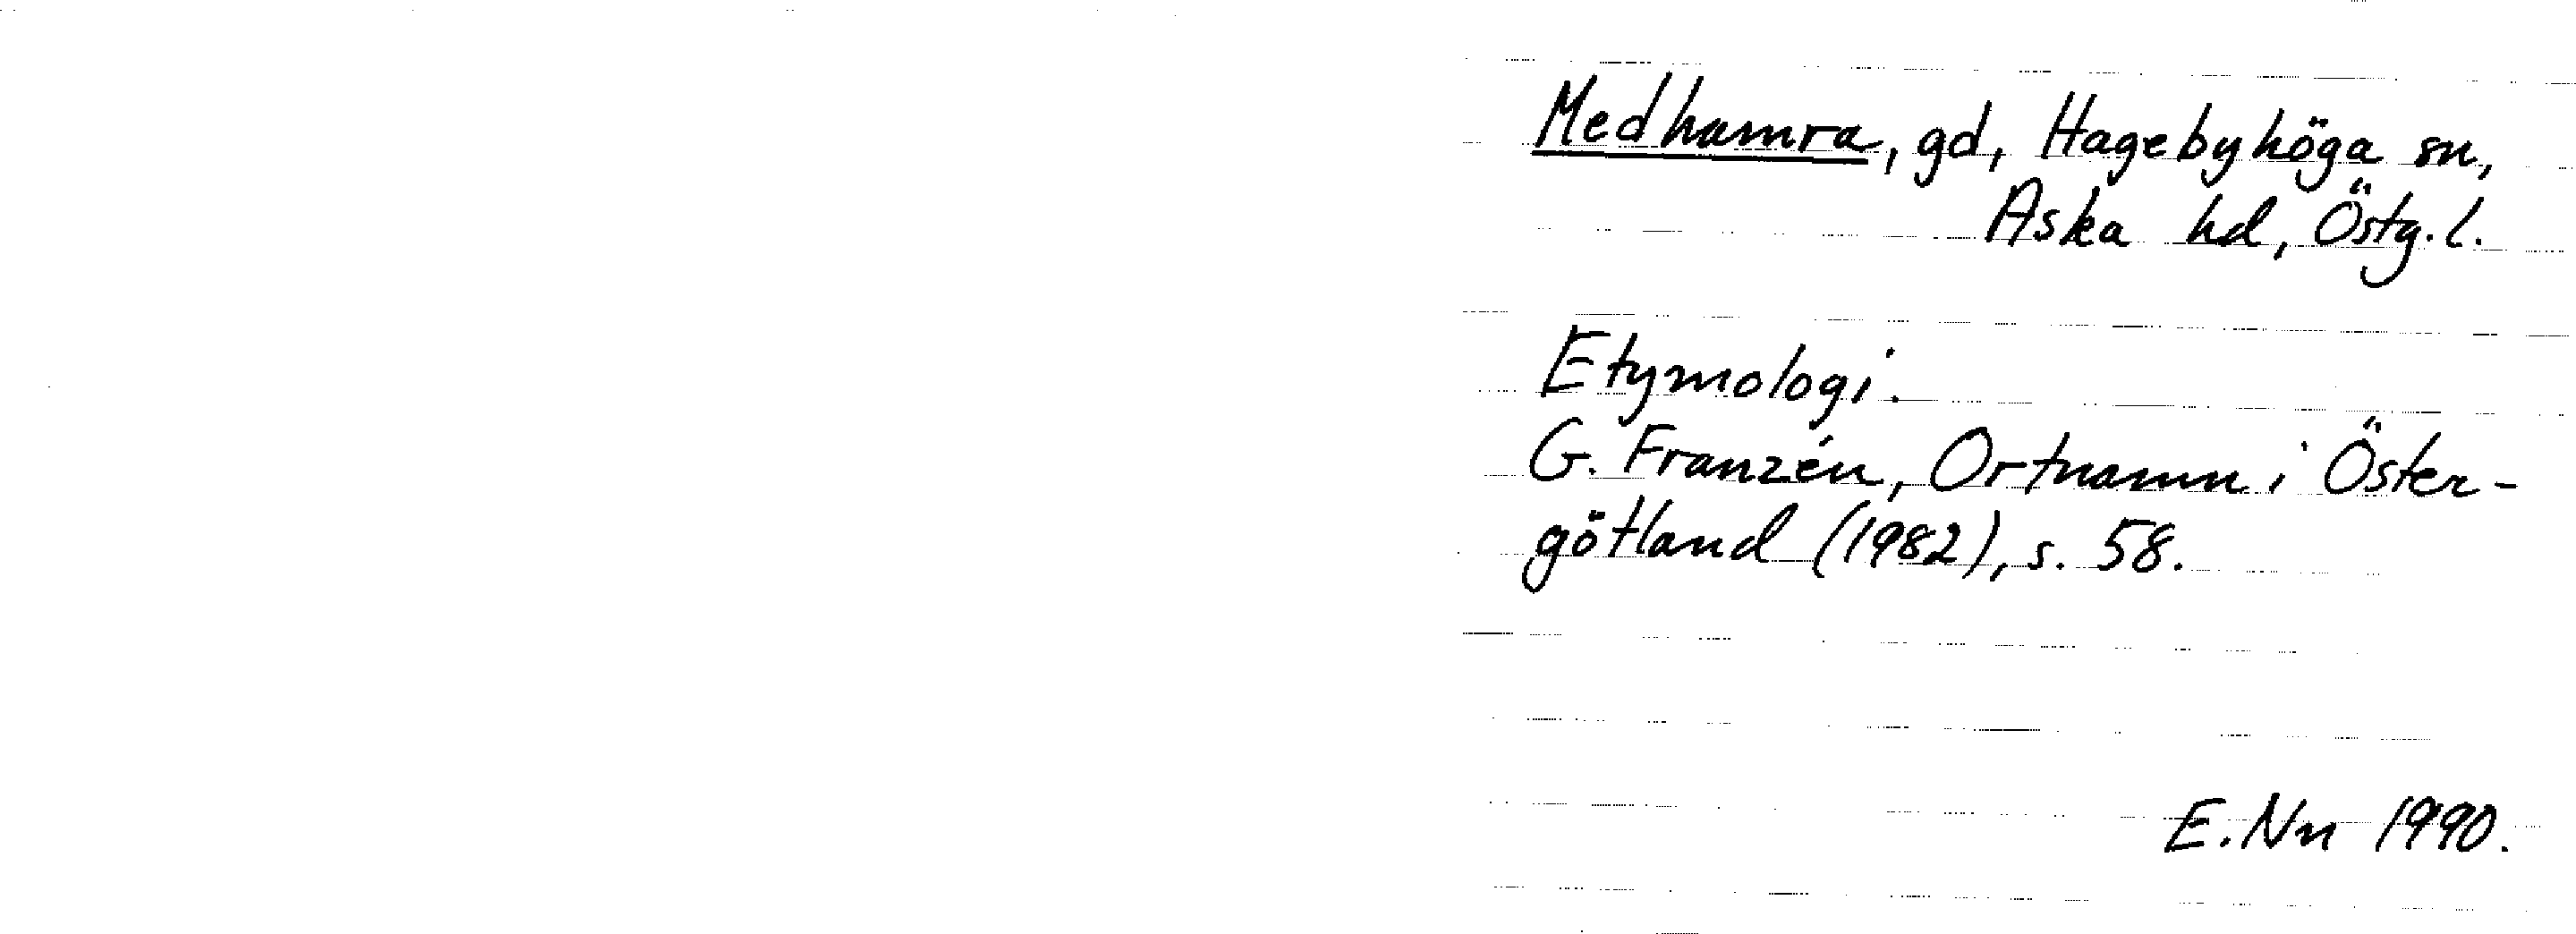 Medhamra, gd, Hagebyhöga sn,
Aska hd, Östg. l.
Etymologi.
G. Franzén, Ortnamn i Öster-
götland (1982), s. 58.
E. Nn 1990.